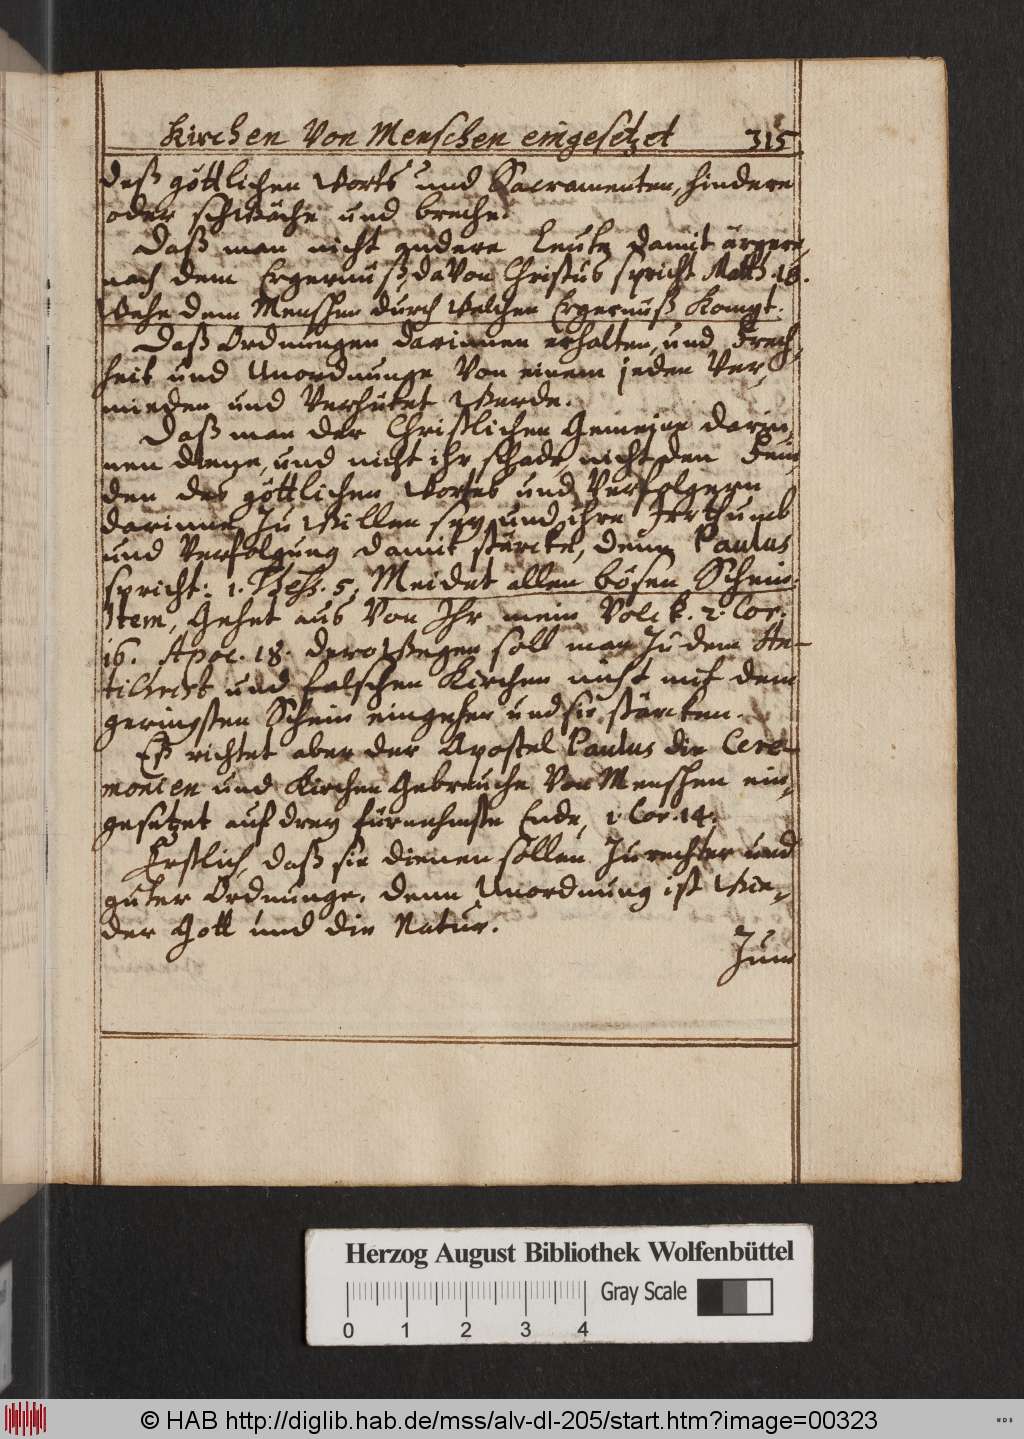 Kirchen Von Menschen eingesetzet 315
deß göttlichen Worts und Sacramenten, hindere
oder schwäche und breche.
Daß man nicht andere Leute damit ärgere,
nach dem Ergernüß, davon Christus spricht Matth. 18.
Wehe dem Menschen durch welchen Ergernüß kompt.
Daß Ordnungen darinnen erhalten, und Frech,
heit und Unordnunge Von einem jeden Ver,
mieden und Verhütet Werde.
Daß man der Christlichen Gemeine darin,
nen diene, und nicht ihr schade, nicht den Fein
den des göttlichen Wortes und Verfolgern
darinne zu Willen sey und ihre Irrthumb
und Verfolgung damit stärcke, denn Paulus
spricht: 1. Thess. 5, Meidet allen bösen Schein.
Item, Gehet aus Von Ihr mein Volck. 2. Cor.
16. Apoc. 18. derowegen soll man zu dem An-
tichrist und falschen Kirchen nicht mit dem
geringsten Schein eingehen und sie stärcken.
Eß richtet aber der Apostel Paulus die Cere-
monien und Kirchen Gebreuche Von Menschen ein,
gesetzet auf drey fürnehmste Ende, 1. Cor. 14.
Erstlich, daß sie dienen sollen zu rechter und
guter Ordnunge, denn Unordnung ist Wie,
der Gott und die Natur.
Zum
Herzog August Bibliothek Wolfenbüttel
Gray Scale
0 1 2 3 4
© HAB http://diglib.hab.de/mss/alv-dl-205/start.htm?image=00323